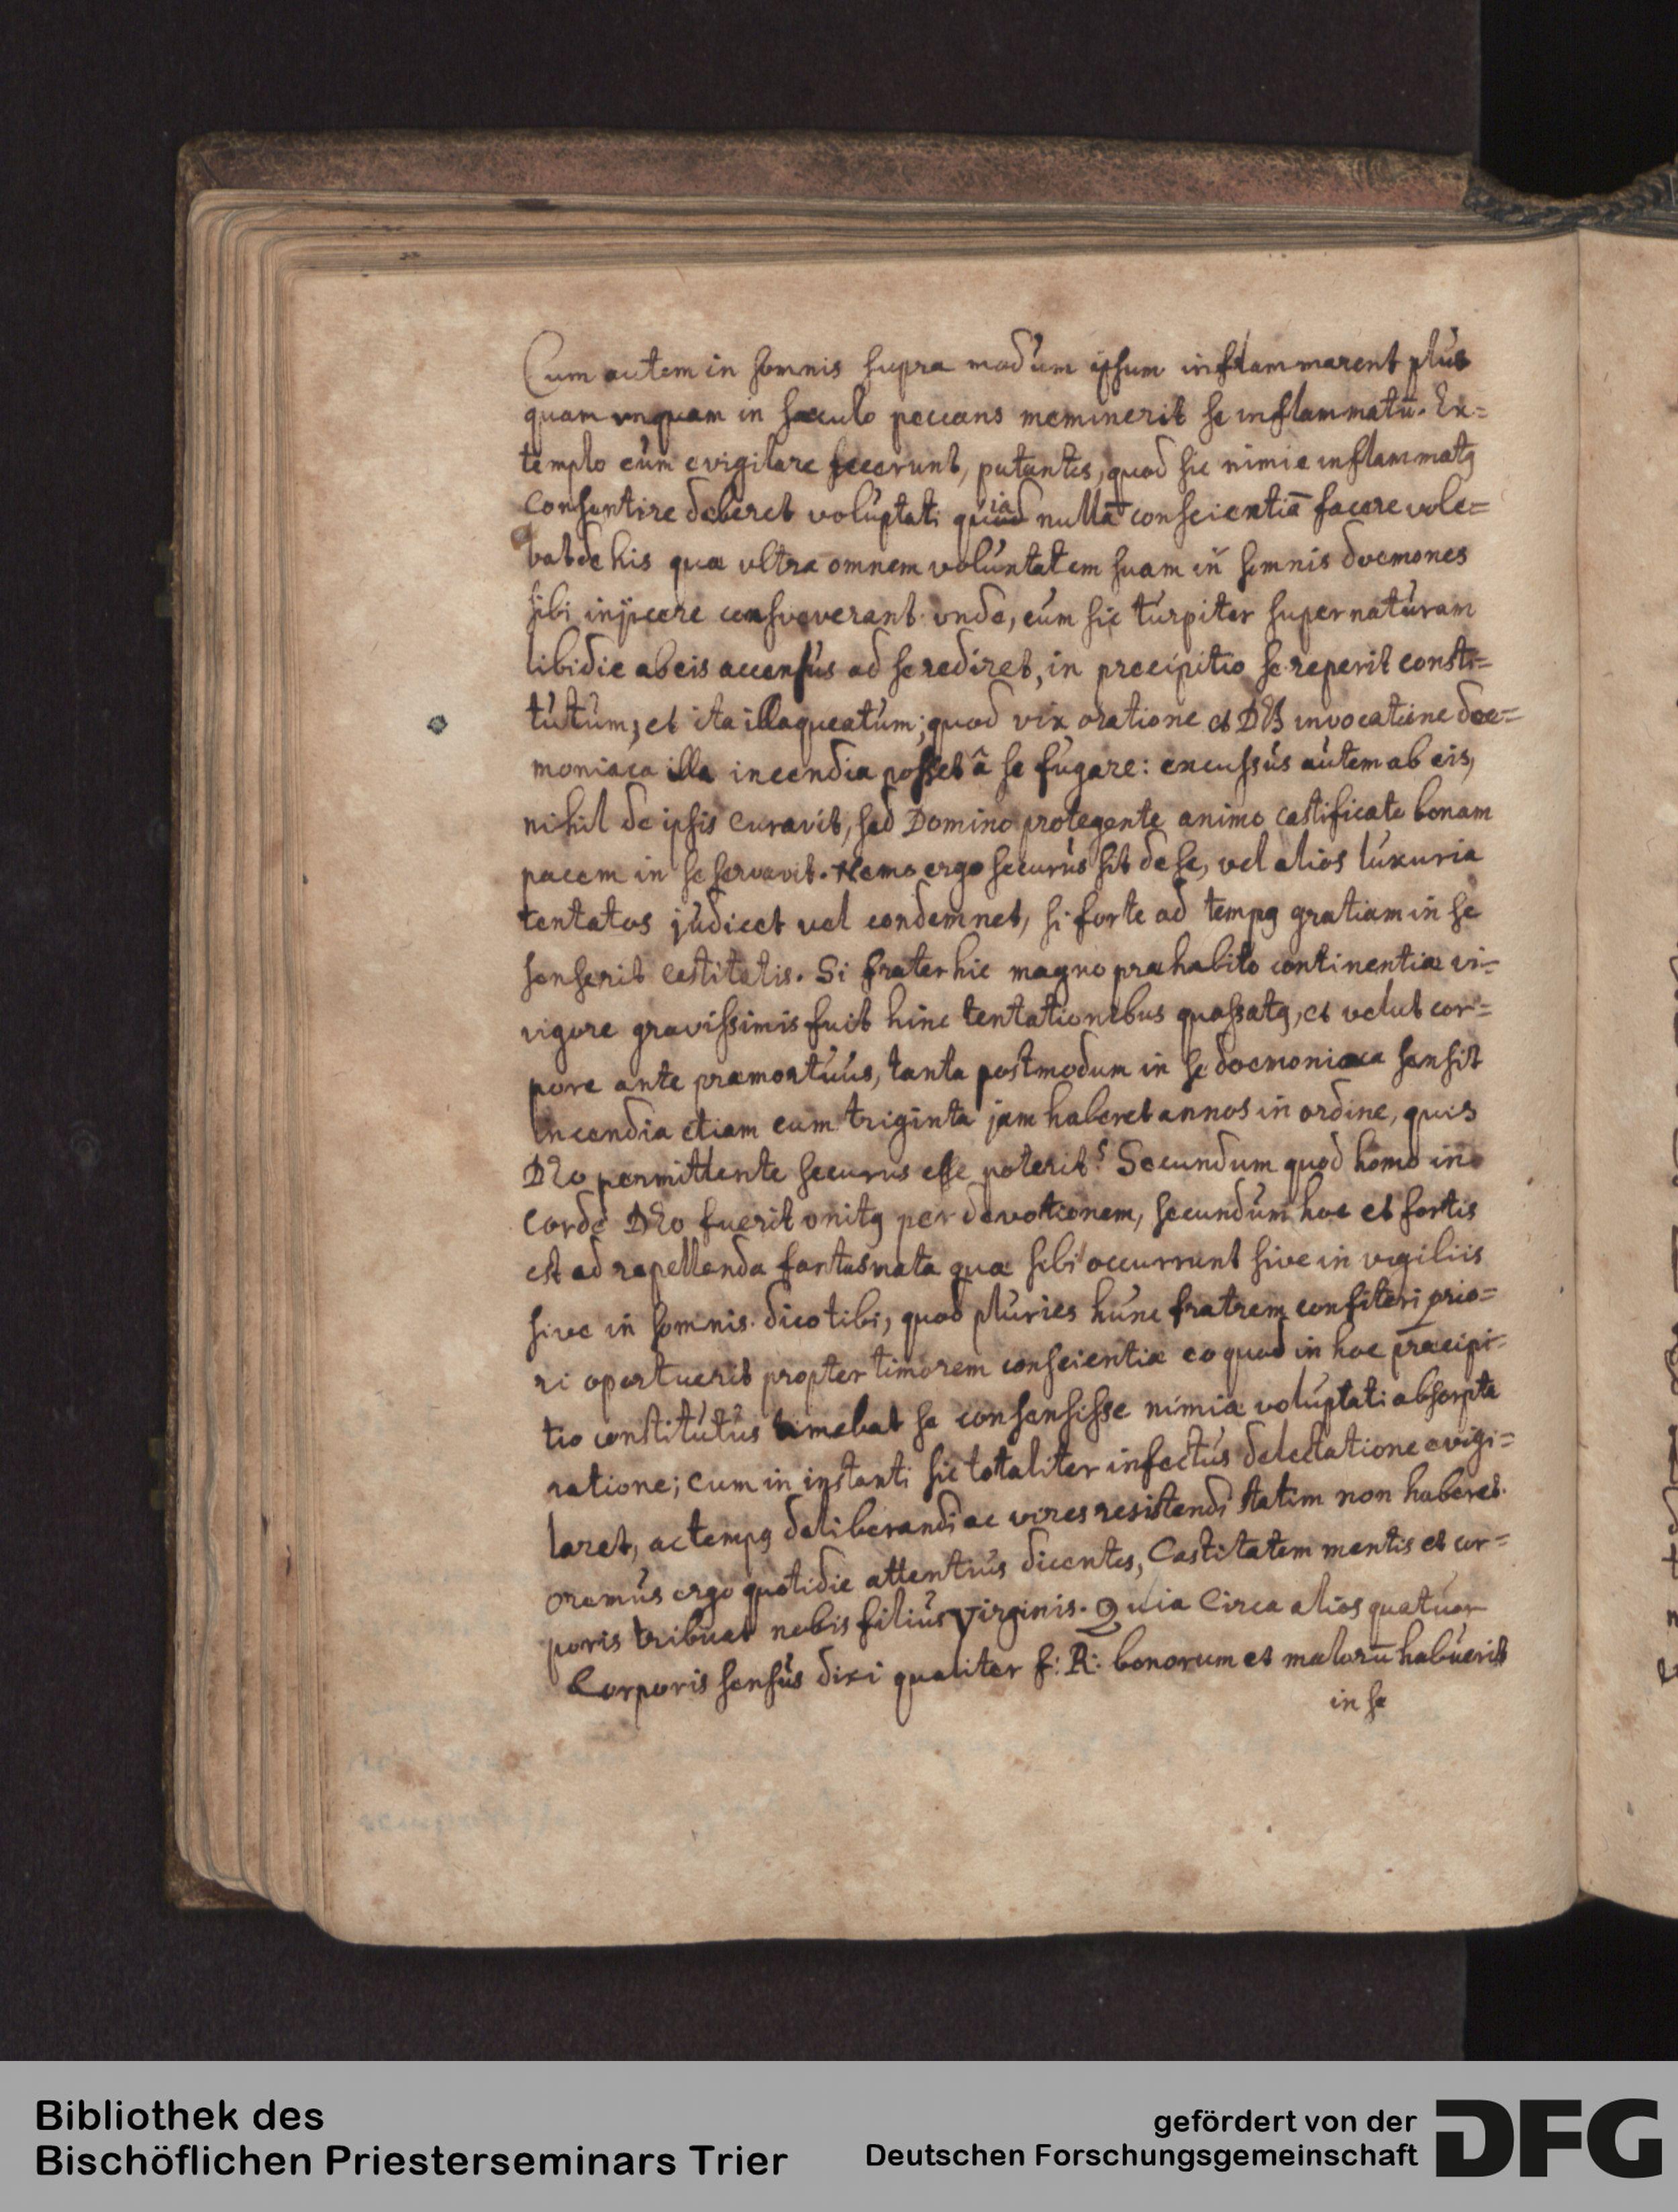 Cum autem in somnis supra modum ipsum inflammarent plus
quam unquam in saeculo peccans meminerit se inflammatū. Ex=
templo eum evigilare fecerunt, putantes, quod sic nimie inflammatꝯ
consentire deberet voluptati quia nullā conscientiā facere vole=
bat de his quae ultra omnem voluntatem suam in somnis doemones
sibi injicere consveverant. vnde, cum sic turpiter super naturam
libidie ab eis accensus ad se rediret, in precipitio se reperit consti=
tutum; et ita illaqueatum; quod vix oratione et invocatione doe=
moniaca illa incendia posset â se fugare: excussus autem ab eis,
nihil de ipsis curavit, sed Domino protegente animo castificato bonam
pacem in se servavit. Nemo ergo securus sit de se, vel alios luxuria
tentatos judicet vel condemnet, si forte ad tempꝯ gratiam in se
senserit castitatis. Si frater hic magno praehabito continentiae vi=
vigore gravissimis fuit hinc tentationibus quassatꝯ, et velut cor=
pore ante praemortuus, tanta postmodum in se doemoniaca sensit
incendia etiam cum triginta jam haberet annos in ordine, quis
Dēo permittente securus esse poterit? Secundum quod homo in
corde Dēo fuerit vnitꝯ per devotionem, secundum hoc et fortis
est ad repellenda fantasmata quae sibi occurrunt sive in vigiliis
sive in somnis. dico tibi, quod pluries hunc fratrem confiteri prio=
ri oportuerit propter timorem conscientiae eo quod in hoc praecipi=
tio constitutus timebat se consensisse nimiae voluptati absorpta
ratione; cum in instanti sic totaliter infectus delectatione evigi=
laret, ac tempꝯ deliberandi ac vires resistendi statim non haberet.
oremus ergo quotidie attentius dicentes, Castitatem mentis et cor=
poris tribuat nobis filius Virginis. Quia Circa alios quatuor
Corporis sensus dixi qualiter f: R: bonorum et malorū habuerit
in se
Bibliothek des
Bischöflichen Priesterseminars Trier
gefördert von der
Deutschen Forschungsgemeinschaft
DFG